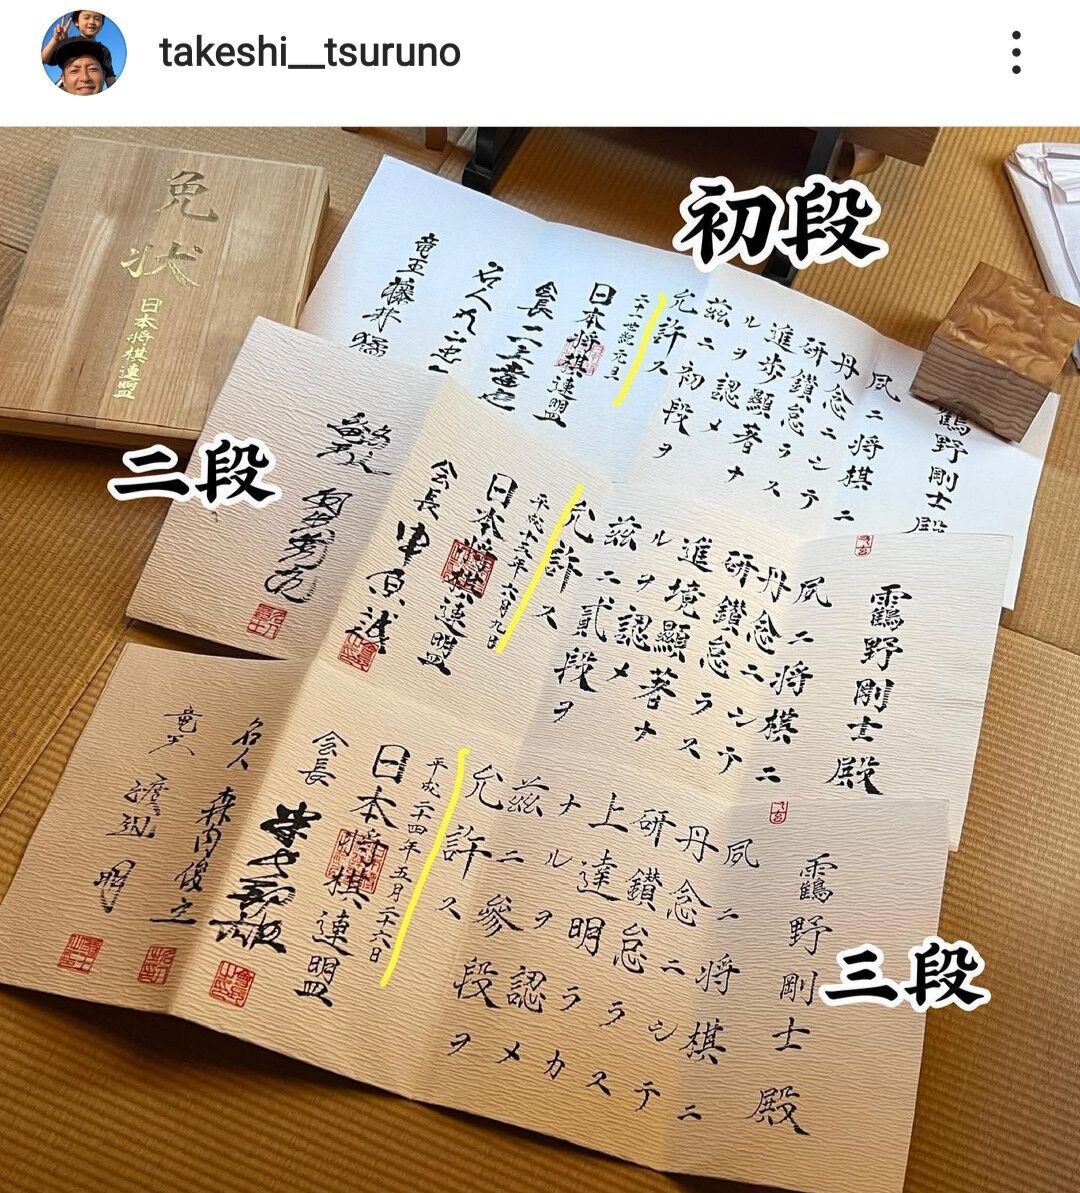 takeshi__tsuruno
免状
日本将棋連盟
初段
鶴野剛士殿
夙ニ将棋ニ
丹念ニシテ
研鑽怠ラス
進歩顕著ナ
ルヲ認メ
茲ニ初段ヲ
允許ス
二十一世紀元旦
日本将棋連盟
会長 二上達也
名人 丸山忠
竜王 藤井猛
二段
靏野剛士殿
夙ニ将棋ニ
丹念ニシテ
研鑽怠ラス
進境顕著ナ
ルヲ認メ
茲ニ貳段ヲ
允許ス
六月九日
日本将棋連盟
会長 中原誠
三段
靏野剛士殿
夙ニ将棋ニ
丹念ニシテ
研鑽怠ラス
上達明ラカ
ナルヲ認メ
茲ニ參段ヲ
允許ス
平成二十四年五月二十六日
日本将棋連盟
会長 米長邦雄
名人 森内俊之
竜王 渡辺明